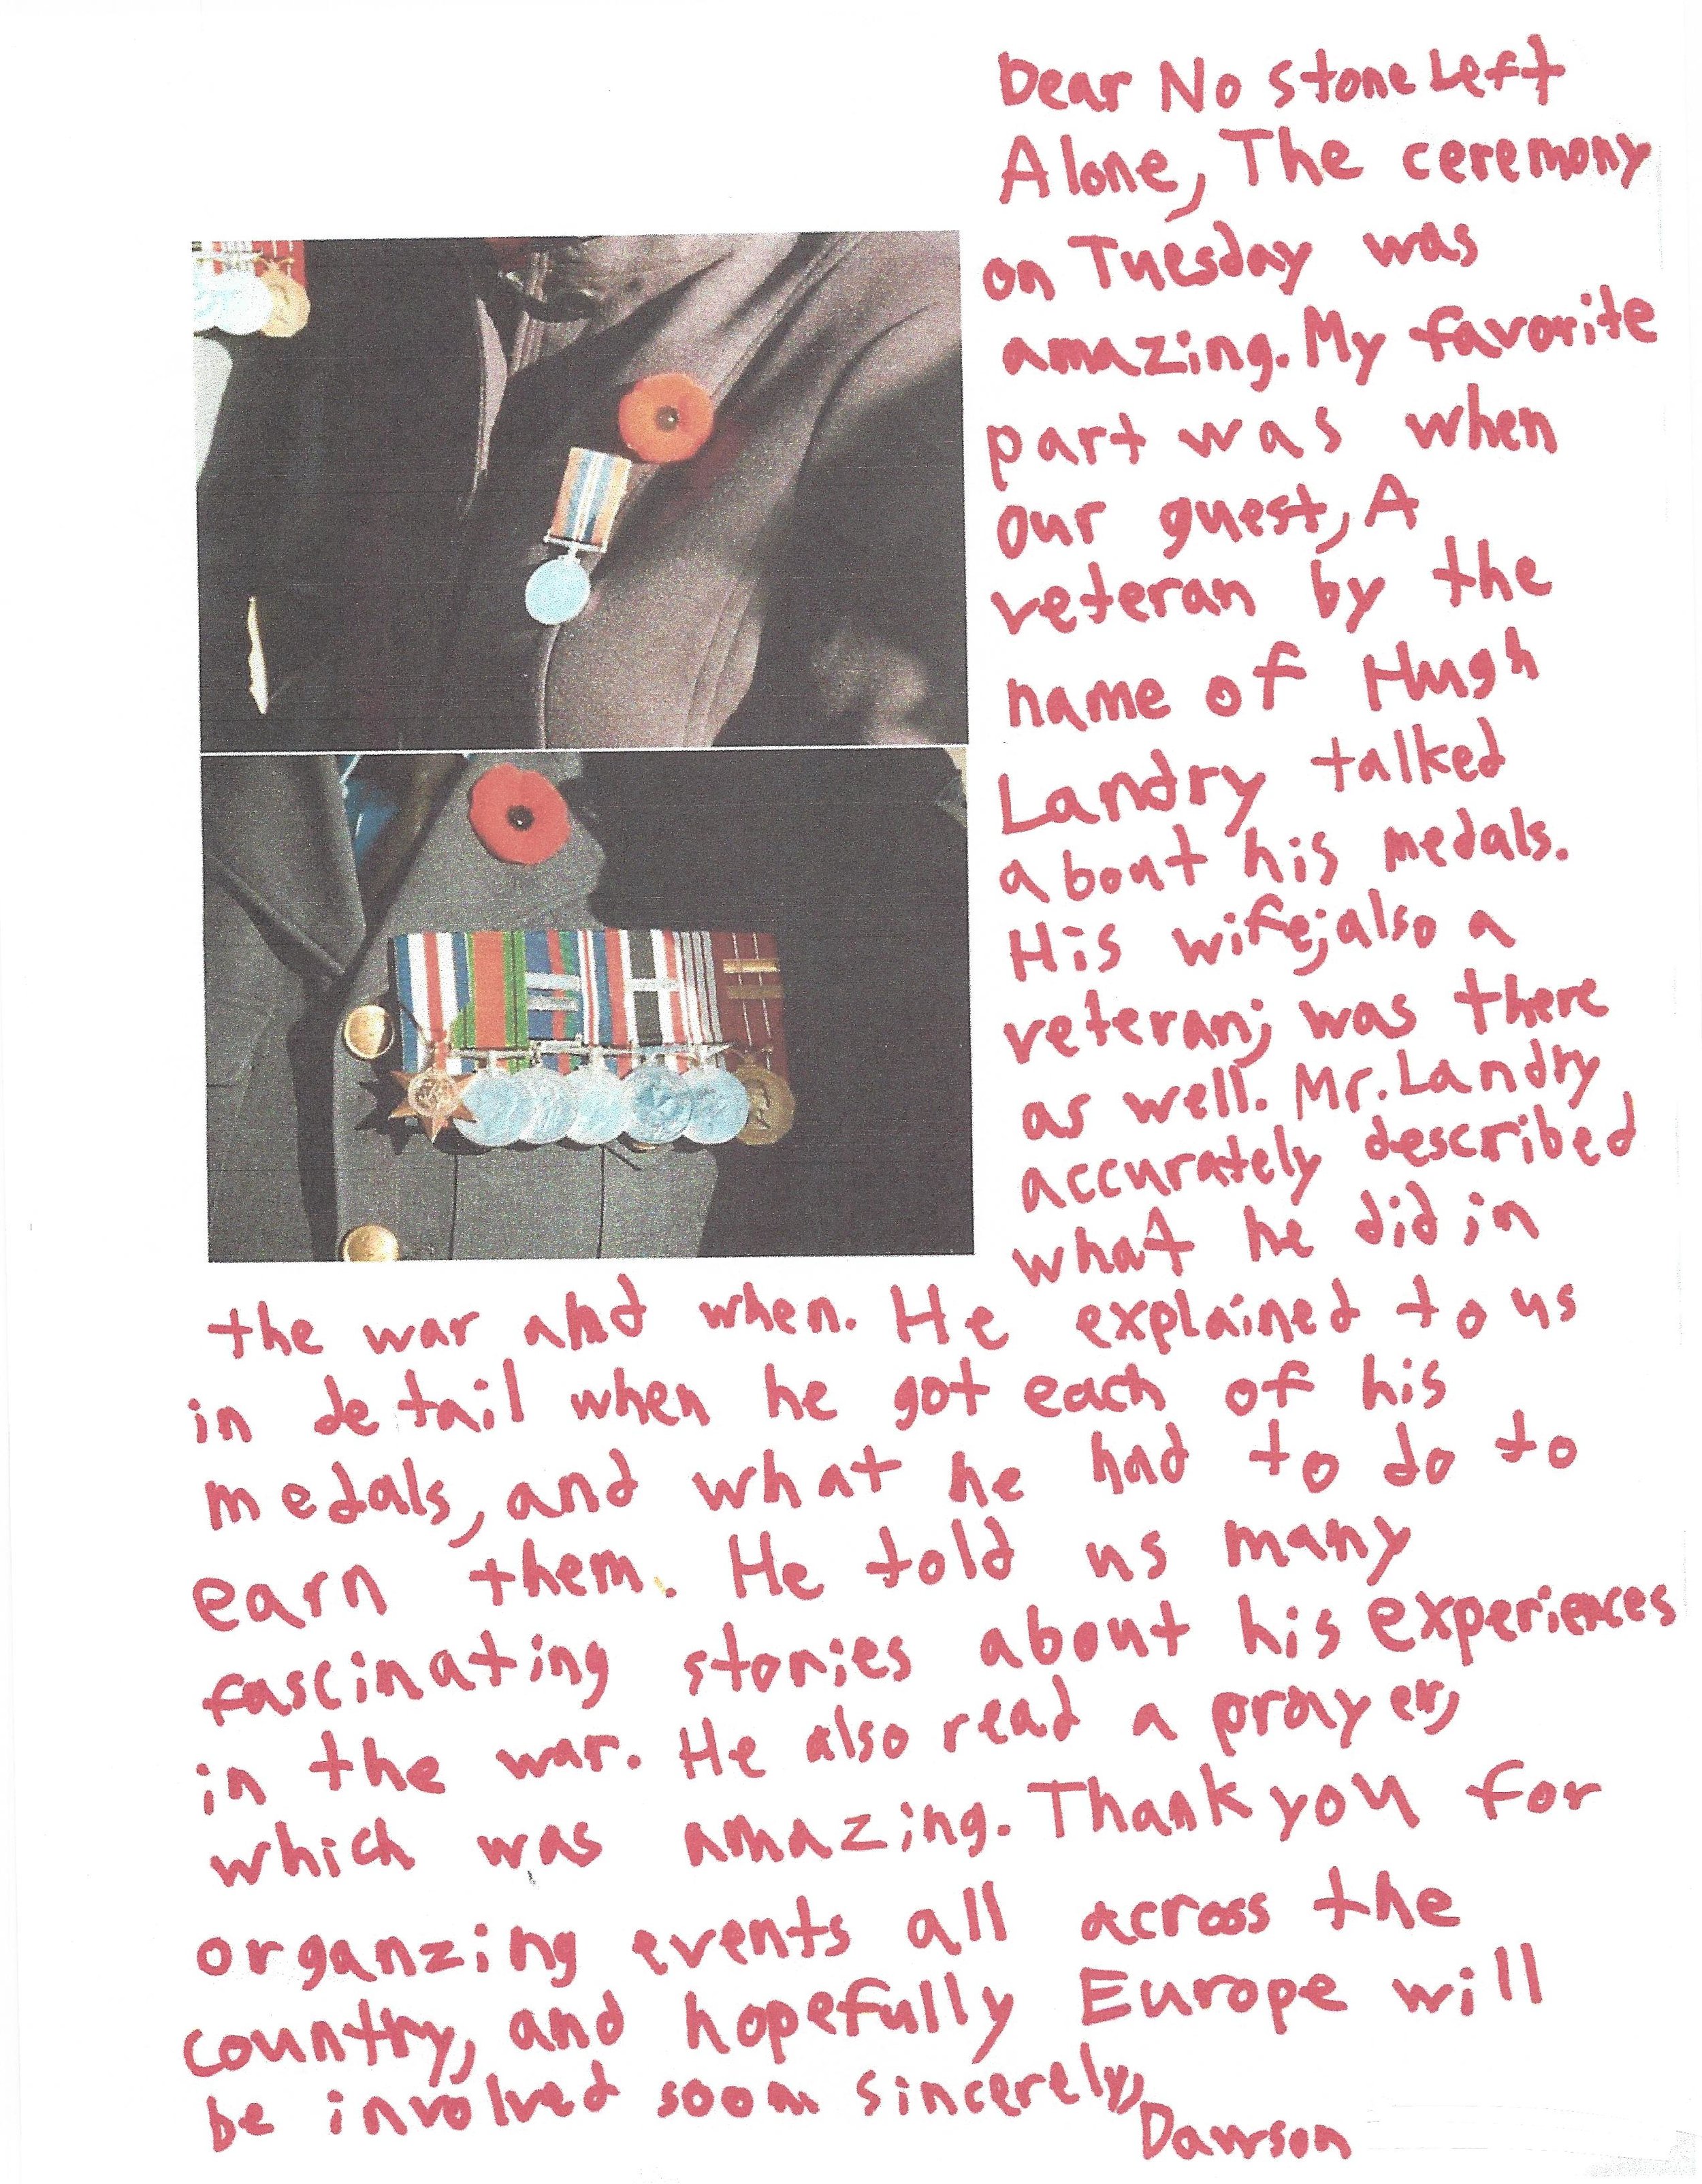 Dear No stone Left
Alone, The ceremony
on Tuesday was
amazing. My favorite
part was when
our guest, A
veteran by the
name of Hugh
Landry talked
about his medals.
His wife; also a
veteran; was there
as well. Mr. Landry
accurately described
what he did in
the war and when. He explained to us
in detail when he got each of his
medals, and what he had to do to
earn them. He told us many
fascinating stories about his experiences
in the war. He also read a prayer,
which was amazing. Thank you for
organzing events all across the
country, and hopefully Europe will
be involved soon sincerely,
Dawson